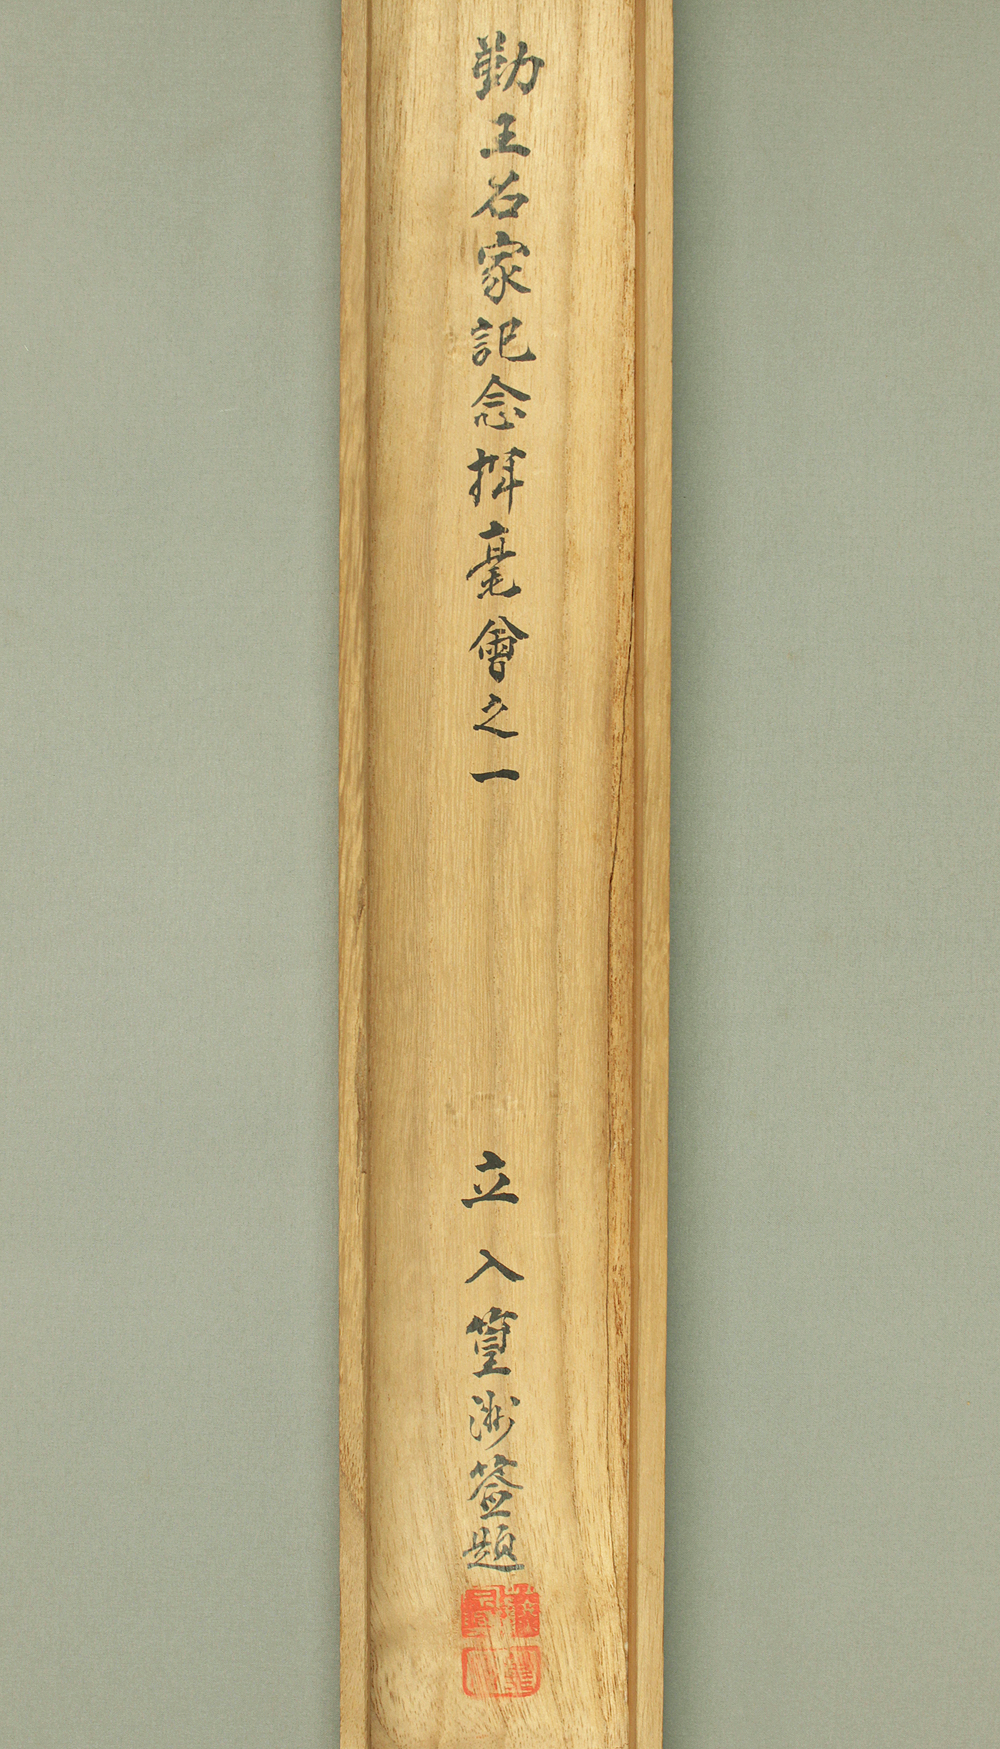 勤王名家記念揮毫會之一
立入篁洲簽題